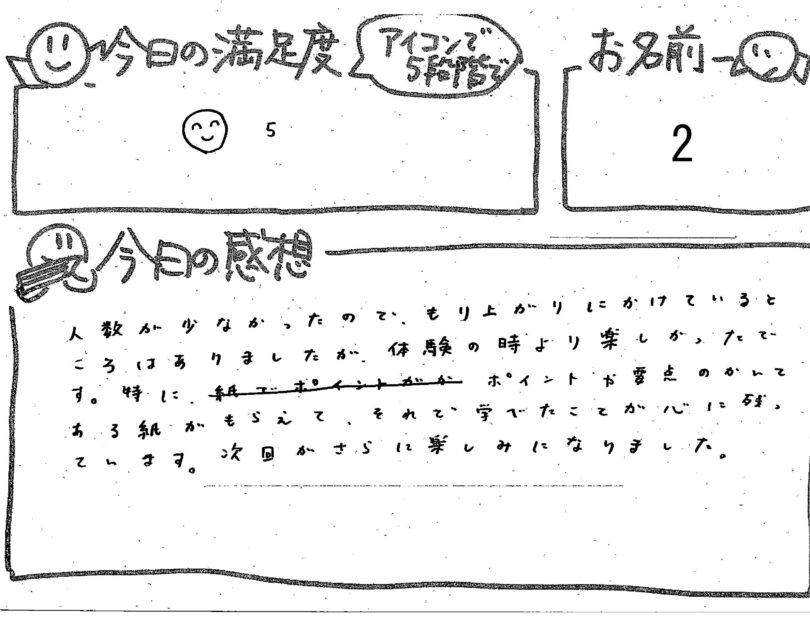 今日の満足度
アイコンで
5段階で
お名前
5
2
今日の感想
人数が少なかったので、もり上がりにかけていると
ころはありましたが、体験の時より楽しかったで
す。特に、紙でポイントがか ポイントや要点のかいて
ある紙がもらえて、それで学べたことが心に残っ
ています。次回がさらに楽しみになりました。